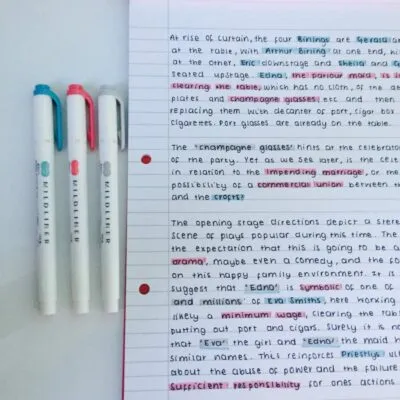 MILDLINER
MILDLINER
MILDLINER
At rise of curtain, the four Birlings are Gerald
at the table, with Arthur Birling at one end, his
at the other, Eric downstage and Sheila and G
seated upstage. Edna, the parlour maid, is
clearing the table, which has no cloth, of the de
plates and champagne glasses etc and then
replacing them with decanter of port, cigar box
cigarettes. Port glasses are already on the table.
The "champagne glasses" hints at the celebrator
of the party. Yet as we see later, is the cele
in relation to the impending marriage, or the
possibility of a commercial union between th
and the Crofts?
The opening stage directions depict a stere
scene of plays popular during this time. The
the expectation that this is going to be a
drama, maybe even a comedy, and the fo
on this happy family environment. It is
suggest that 'Edna' is symbolic of one of
and millions' of Eva Smiths, here working
likely a minimum wage, clearing the tabl
putting out port and cigars. Surely it is no
that 'Eva' the girl and 'Edna' the maid h
similar names. This reinforces Priestlys
about the abuse of power and the failure
sufficient responsibility for ones actions